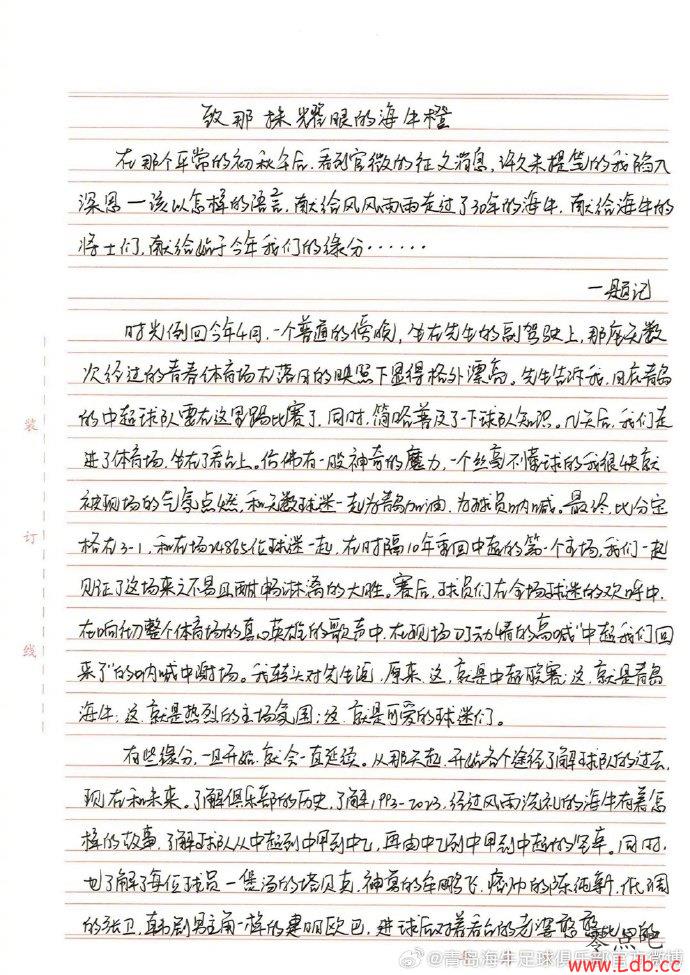 致那抹耀眼的海牛橙
在那个平常的初秋午后，看到官微的征文消息，许久未提笔的我陷入
深思—该以怎样的语言，献给风风雨雨走过了30年的海牛，献给海牛的
将士们，献给始于今年我们的缘分······
—题记
时光倒回今年4月，一个普通的傍晚，坐在先生的副驾驶上，那座无数
次经过的青春体育场在落日的映照下显得格外漂亮。先生告诉我，现在青岛
的中超球队要在这里踢比赛了，同时，简略普及了一下球队知识。几天后，我们走
进了体育场，坐在了看台上。仿佛有一股神奇的魔力，一个丝毫不懂球的我很快就
被现场的气氛点燃，和无数球迷一起为青岛加油，为球员呐喊。最终，比分定
格在3-1，和在场24865位球迷一起，在时隔10年重回中超的第一个主场，我们一起
见证了这场来之不易且酣畅淋漓的大胜。赛后，球员们在全场球迷的欢呼中，
在响彻整个体育场的真心英雄的歌声中，在现场DJ动情的高喊“中超我们回
来了”的呐喊中谢场。我转头对先生说，原来，这，就是中超联赛；这，就是青岛
海牛；这，就是热烈的主场氛围；这，就是可爱的球迷们。
有些缘分，一旦开始，就会一直延续。从那天起，开始各个途径了解球队的过去，
现在和未来。了解俱乐部的历史，了解1993-2023，经过风雨洗礼的海牛有着怎
样的故事，了解球队从中超到中甲到中乙，再由中乙到中甲到中超的坚韧。同时，
也了解了每位球员—煲汤的塔贝真，神勇的牟鹏飞，痞帅的陈纯新，低调
的张卫，韩剧男主角一样的建明欧巴，进球后对着看台的老婆
装
订
线
@青岛海牛足球俱乐部官方微博
零点吧
www.Ldb.cc